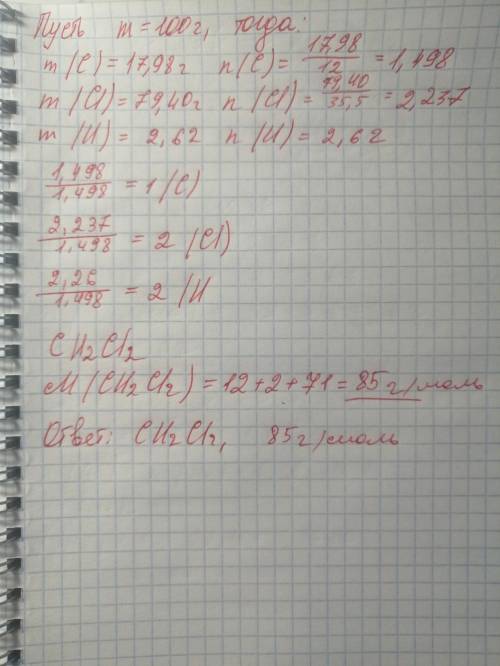 Пусть m = 100г, тогда:
m (C) = 17,98г n(C) = 17,98/12 = 1,498
m (Cl) = 79,40г n (Cl) = 79,40/35,5 = 2,237
m (H) = 2,62 n (H) = 2,62
1,498/1,498 = 1 (C)
2,237/1,498 = 2 (Cl)
2,26/1,498 = 2 (H
CH2Cl2
M (CH2Cl2) = 12+2+71 = 85г/моль
Ответ: CH2Cl2, 85г/моль